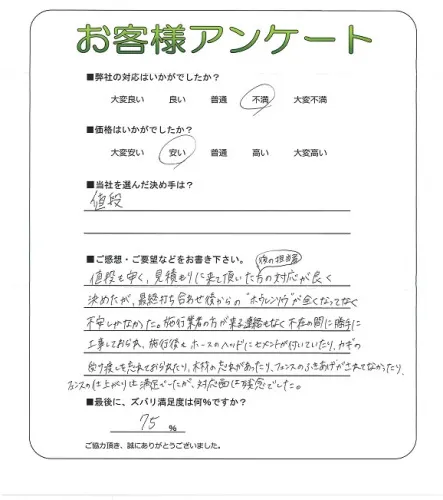 お客様アンケート
■弊社の対応はいかがでしたか?
大変良い 良い 普通 不満 大変不満
■価格はいかがでしたか?
大変安い 安い 普通 高い 大変高い
■当社を選んだ決め手は?
値段
■ご感想・ご要望などをお書き下さい。
値段も安く、見積もりに来て頂いた方の対応が良く
決めたが、最終打ち合わせ後からの"ホウレンソウ"が全くなってなく
不安しかなかった。施行業者の方が来る連絡もなく不在の間に勝手に
工事しておられ、施行後もホースのヘッドにセメントが付いていたり、カギの
受け渡しを忘れておられたり、木材の忘れがあったり、フェンスのふきあげがされてなかったり、
フェンスの仕上がりは満足だったが、対応面は残念でした。
■最後に、ズバリ満足度は何%ですか?
75 %
ご協力頂き、誠にありがとうございました。